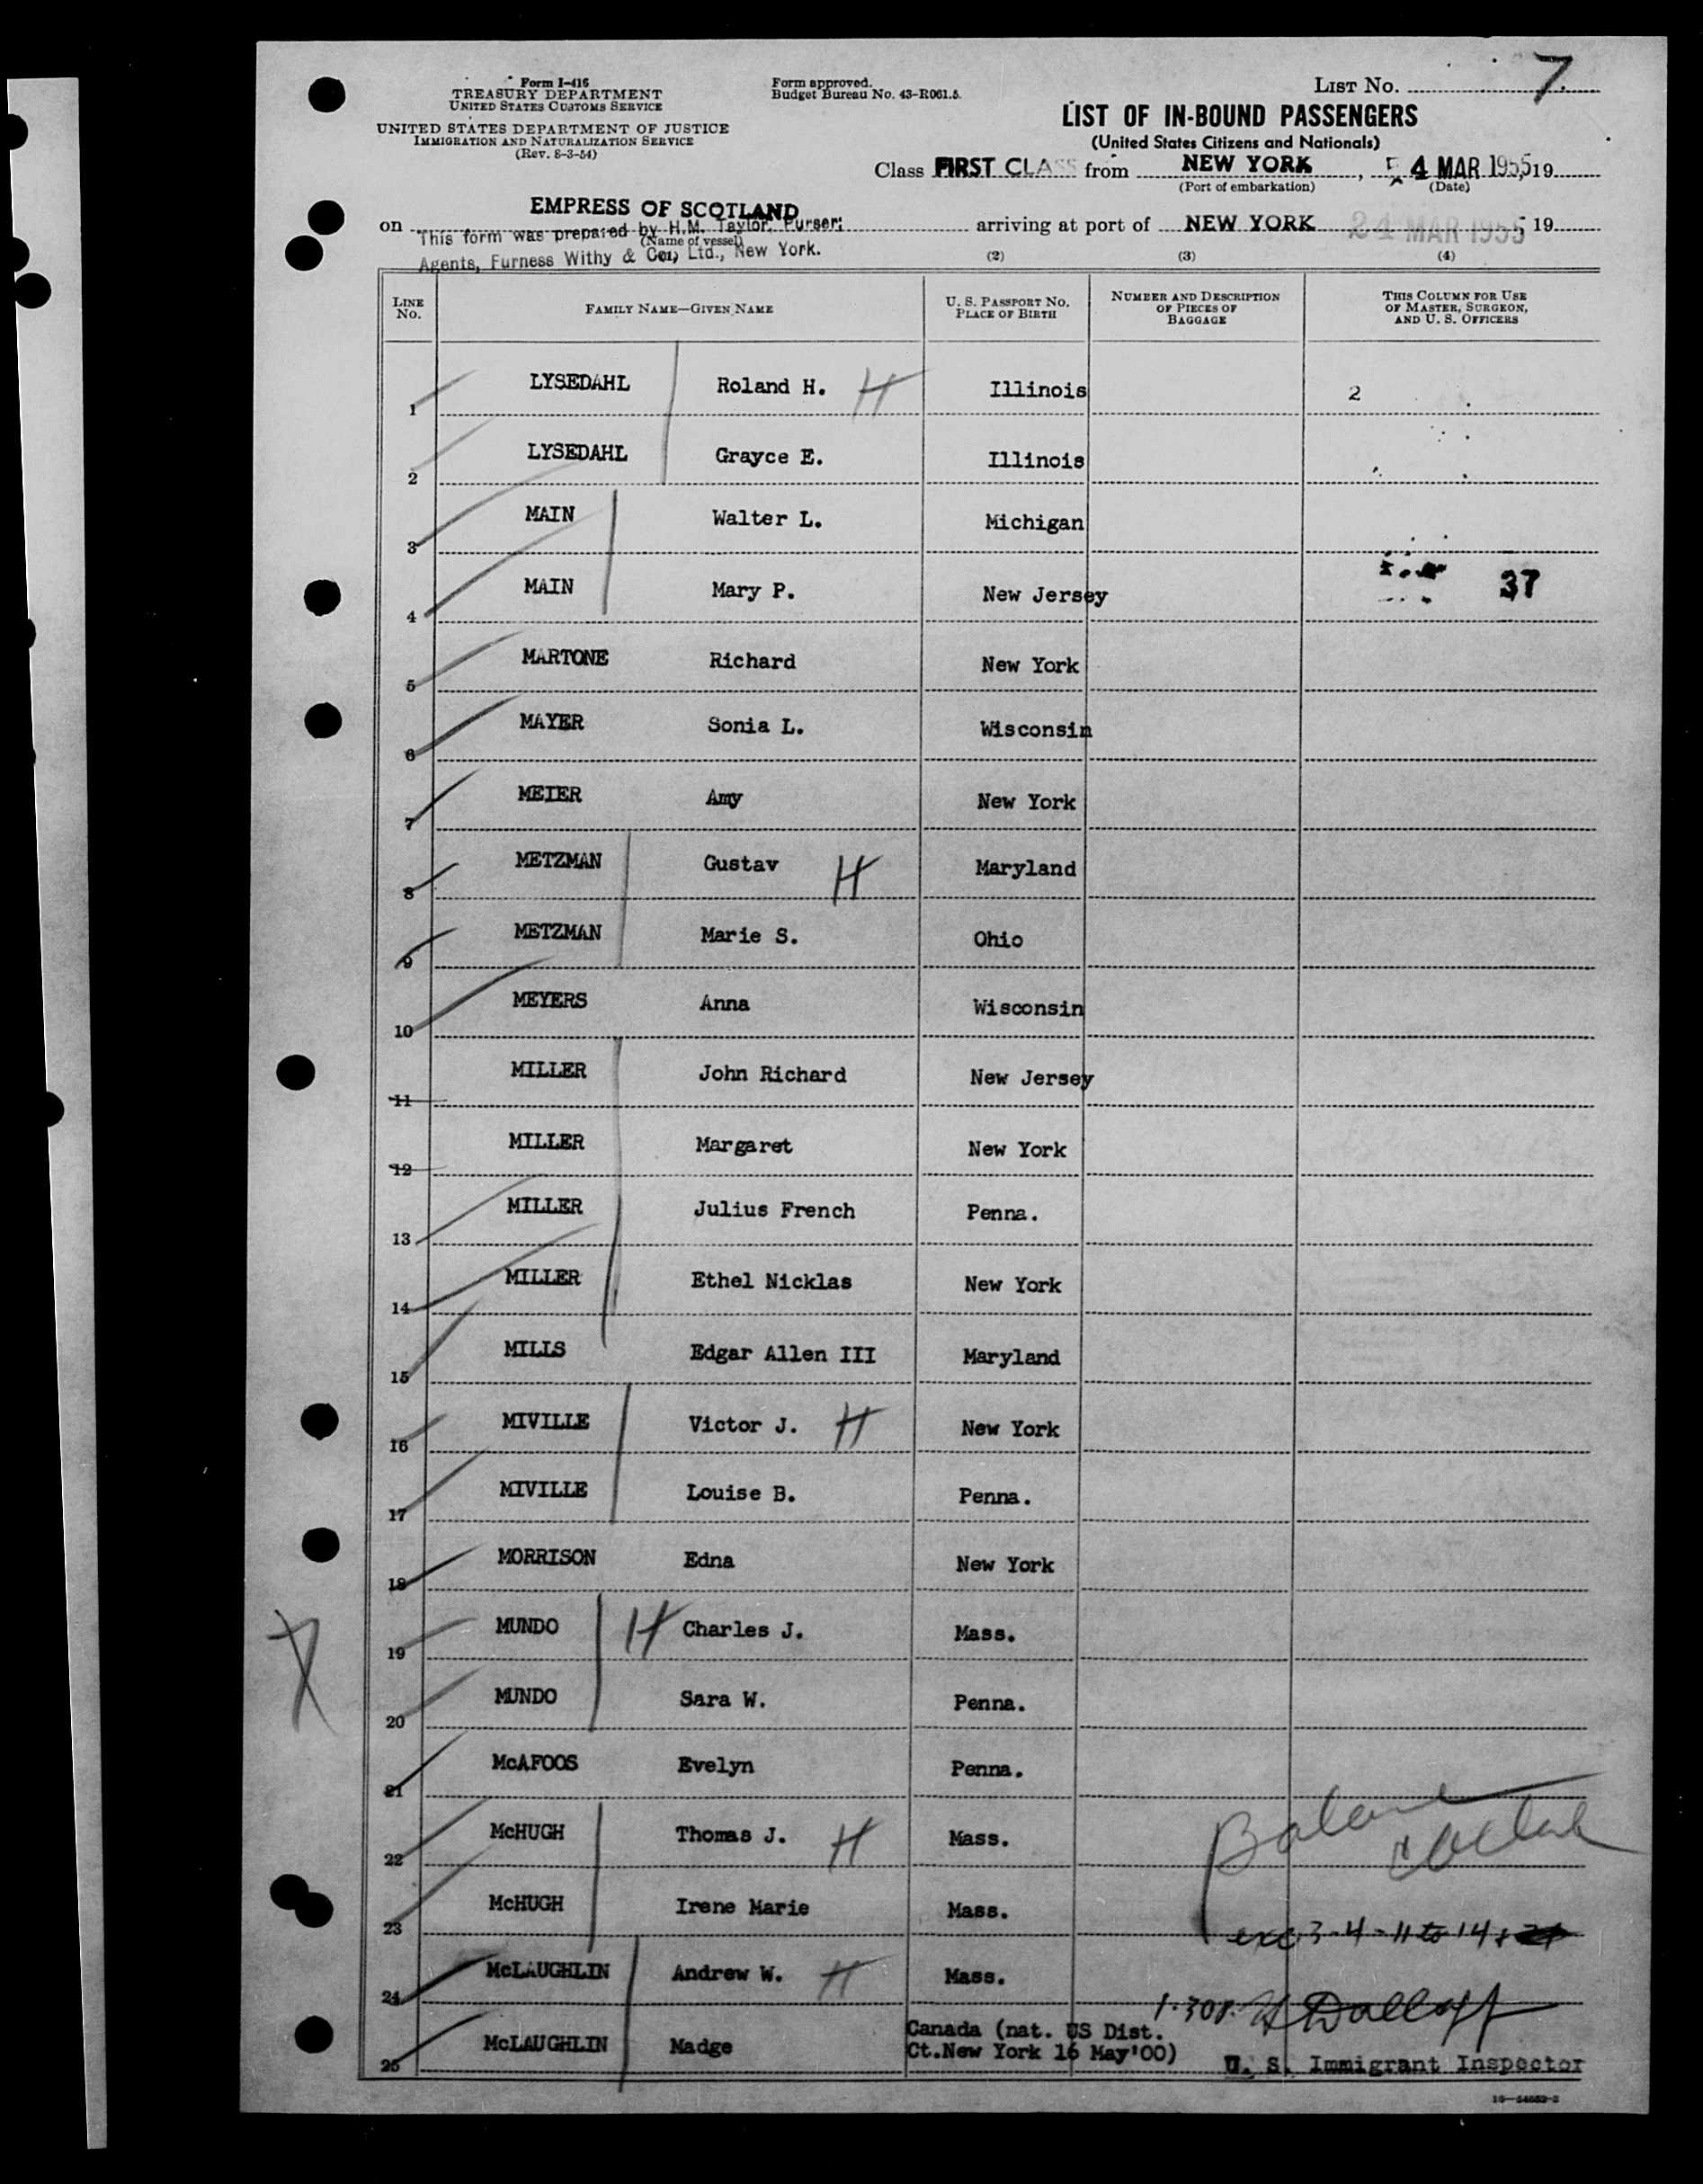 Form I-416
TREASURY DEPARTMENT
UNITED STATES CUSTOMS SERVICE
UNITED STATES DEPARTMENT OF JUSTICE
IMMIGRATION AND NATURALIZATION SERVICE
(Rev. 8-3-54)
Form approved.
Budget Bureau No. 43-R061.5.
LIST NO. 7.
LIST OF IN-BOUND PASSENGERS
(United States Citizens and Nationals)
Class FIRST CLASS from NEW YORK, 4 MAR 1955, 19
(Port of embarkation) (Date)
on EMPRESS OF SCOTLAND arriving at port of NEW YORK 24 MAR 1955 19
This form was prepared by H.M. Taylor, Purser;
(Name of vessel)
Agents, Furness Withy & Co., Ltd., New York.
(1) (2) (3) (4)
LINE NO. FAMILY NAME—GIVEN NAME U. S. PASSPORT NO. PLACE OF BIRTH NUMBER AND DESCRIPTION OF PIECES OF BAGGAGE THIS COLUMN FOR USE OF MASTER, SURGEON, AND U. S. OFFICERS
1 LYSEDAHL Roland H. H Illinois 2
2 LYSEDAHL Grayce E. Illinois
3 MAIN Walter L. Michigan
4 MAIN Mary P. New Jersey 37
5 MARTONE Richard New York
6 MAYER Sonia L. Wisconsin
7 MEIER Amy New York
8 METZMAN Gustav H Maryland
9 METZMAN Marie S. Ohio
10 MEYERS Anna Wisconsin
11 MILLER John Richard New Jersey
12 MILLER Margaret New York
13 MILLER Julius French Penna.
14 MILLER Ethel Nicklas New York
15 MILLS Edgar Allen III Maryland
16 MIVILLE Victor J. H New York
17 MIVILLE Louise B. Penna.
18 MORRISON Edna New York
19 MUNDO H Charles J. Mass.
20 MUNDO Sara W. Penna.
21 McAFOOS Evelyn Penna.
22 McHUGH Thomas J. H Mass.
23 McHUGH Irene Marie Mass.
exc 3-4-11 to 14
24 McLAUGHLIN Andrew W. H Mass.
25 McLAUGHLIN Madge Canada (nat. US Dist.
Ct.New York 16 May'00)
U. S. Immigrant Inspector